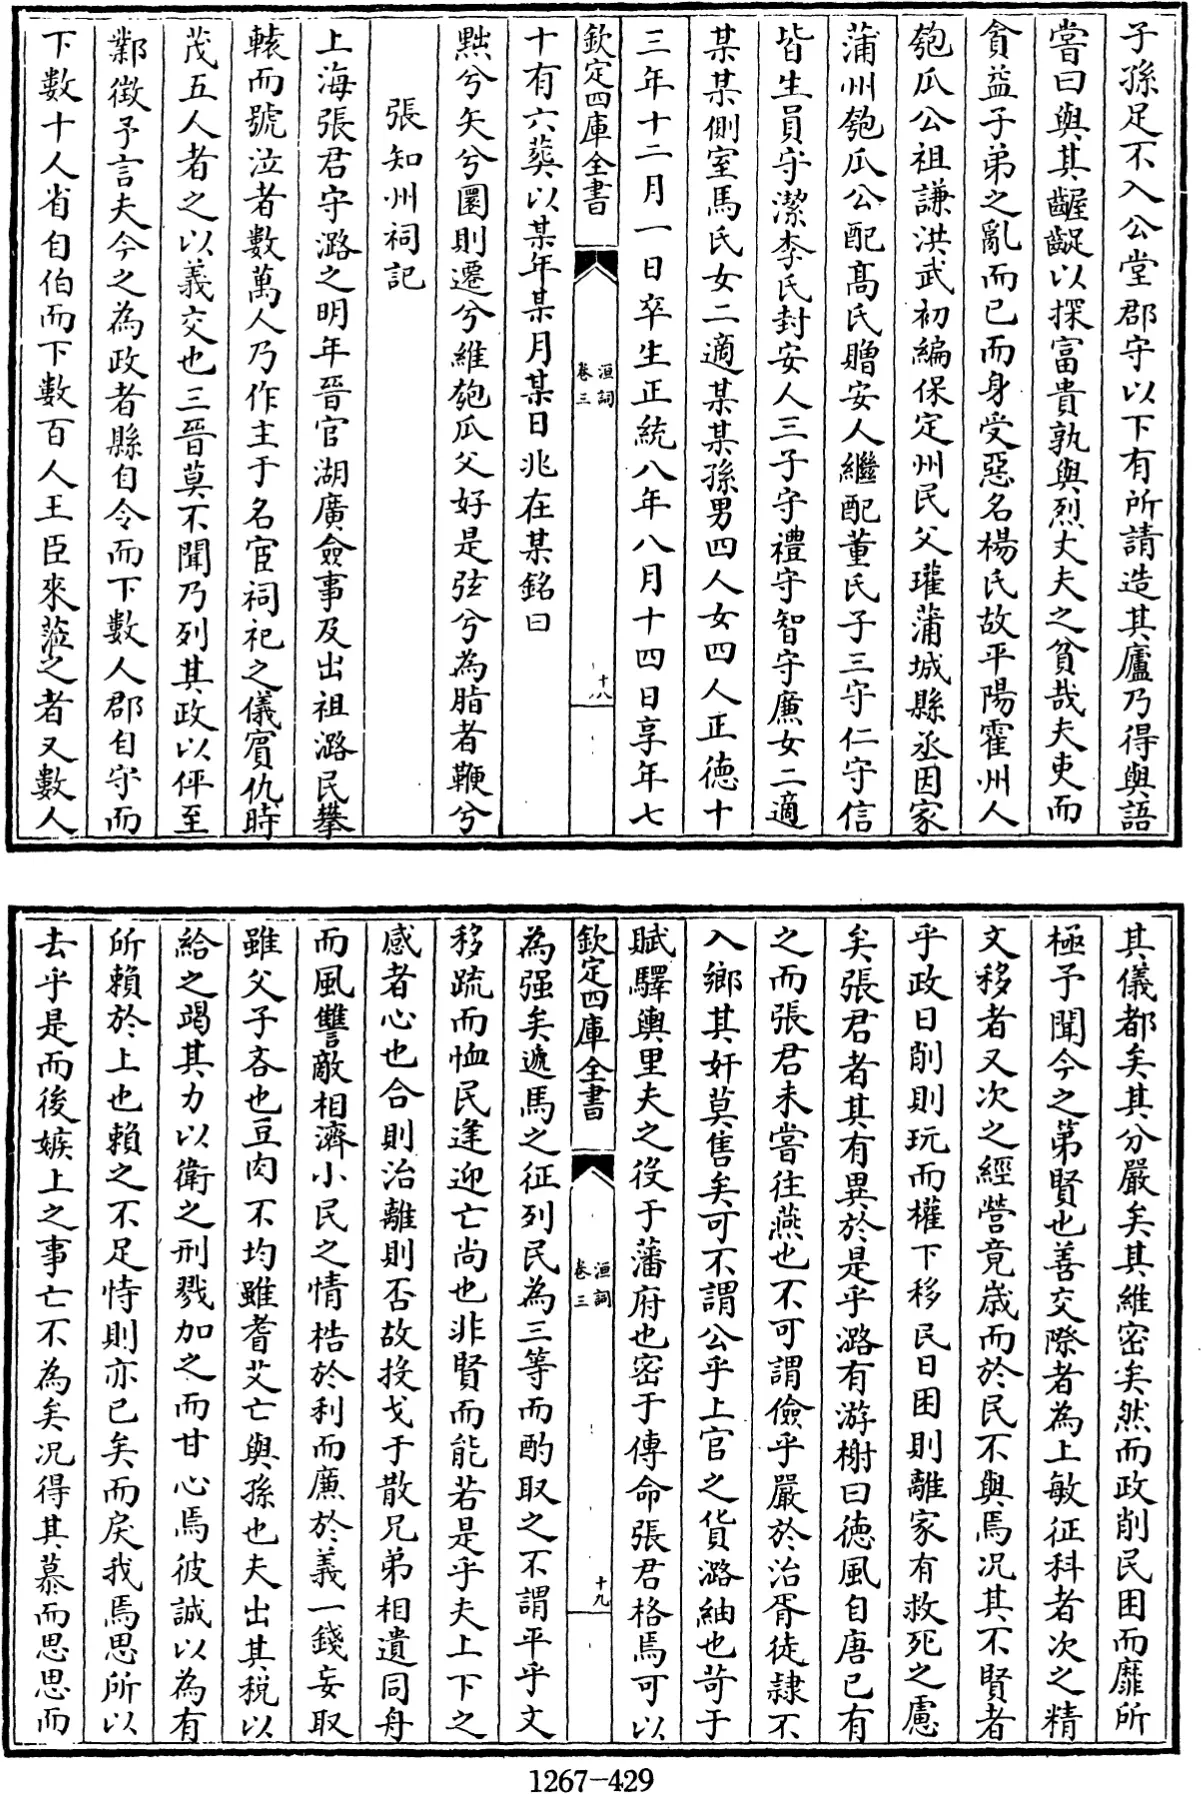 子孫足不入公堂郡守以下有所請造其廬乃得與語
嘗曰與其齷齪以探富貴孰與烈丈夫之貧哉夫吏而
貪益子弟之亂而已而身受惡名楊氏故平陽霍州人
匏瓜公祖謙洪武初編保定州民父瓘蒲城縣丞因家
蒲州匏瓜公配髙氏贈安人繼配董氏子三守仁守信
皆生員守潔李氏封安人三子守禮守智守廉女二適
某某側室馬氏女二適某某孫男四人女四人正徳十
三年十二月一日卒生正統八年八月十四日享年七
欽定四庫全書
洹詞
卷三
十八
十有六葬以某年某月某日兆在某銘曰
㸃兮矢兮圜則遷兮維匏瓜父好是弦兮為脂者鞭兮
張知州祠記
上海張君守潞之明年晉官湖廣僉事及出祖潞民攀
轅而號泣者數萬人乃作主于名宦祠祀之儀賔仇時
茂五人者之以義交也三晉莫不聞乃列其政以伻至
鄴徴予言夫今之為政者縣自令而下數人郡自守而
下數十人省自伯而下數百人王臣來蒞之者又數人
其儀都矣其分嚴矣其維密矣然而政削民困而靡所
極予聞今之第賢也善交際者為上敏征科者次之精
文移者又次之經營竟嵗而於民不與焉况其不賢者
乎政日削則玩而權下移民日困則離家有救死之慮
矣張君者其有異於是乎潞有游榭曰徳風自唐已有
之而張君未嘗往燕也不可謂儉乎嚴於治胥徒隷不
入鄉其奸莫售矣可不謂公乎上官之貨潞紬也苛于
賦驛輿里夫之役于藩府也密于傳命張君格焉可以
欽定四庫全書
洹詞
卷三
十九
為强矣遞馬之征列民為三等而酌取之不謂平乎文
移疏而恤民逢迎亡尚也非賢而能若是乎夫上下之
感者心也合則治離則否故投戈于散兄弟相遺同舟
而風讐敵相濟小民之情梏於利而廉於義一錢妄取
雖父子吝也豆肉不均雖耆艾亡與孫也夫出其税以
給之竭其力以衛之刑戮加之而甘心焉彼誠以為有
所賴於上也賴之不足恃則亦已矣而戾我焉思所以
去乎是而後嫉上之事亡不為矣况得其慕而思思而
1267-429